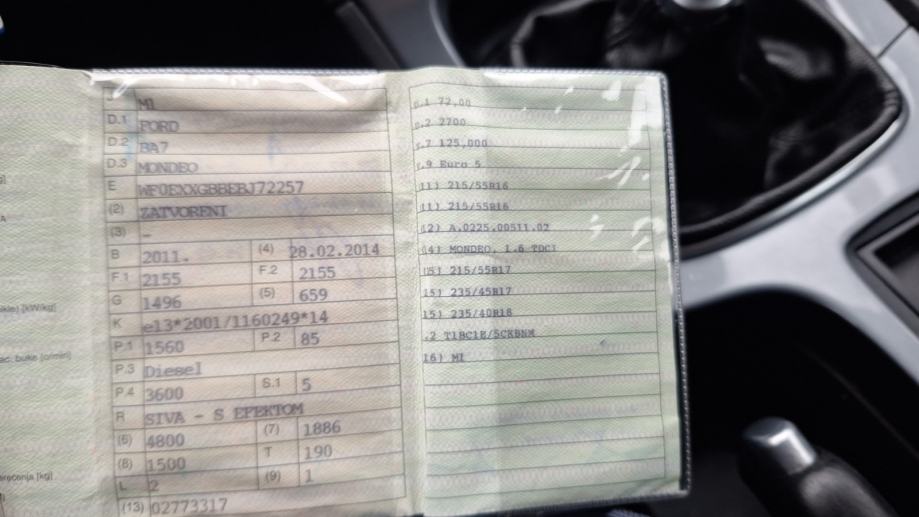 M1
D.1 FORD
D.2 BA7
D.3 MONDEO
E WF0EXXGBBEBJ72257
(2) ZATVORENI
(3) –
B 2011. (4) 28.02.2014
F.1 2155 F.2 2155
G 1496 (5) 659
K e13*2001/1160249*14
P.1 1560 P.2 85
P.3 Diesel
P.4 3600 S.1 5
R SIVA - S EFEKTOM
(6) 4800 (7) 1886
(8) 1500 T 190
L 2 (9) 1
(13) 02773317
.1 72,00
.2 2700
.7 125,000
.9 Euro 5
11) 215/55R16
11) 215/55R16
12) A.0225.00511.02
14) MONDEO, 1.6 TDCI
15) 215/55R17
15) 235/45R17
15) 235/40R18
.2 T1BC1E/5CKBNM
16) M1
[kW/kg]
buke [o/min]
[kg]